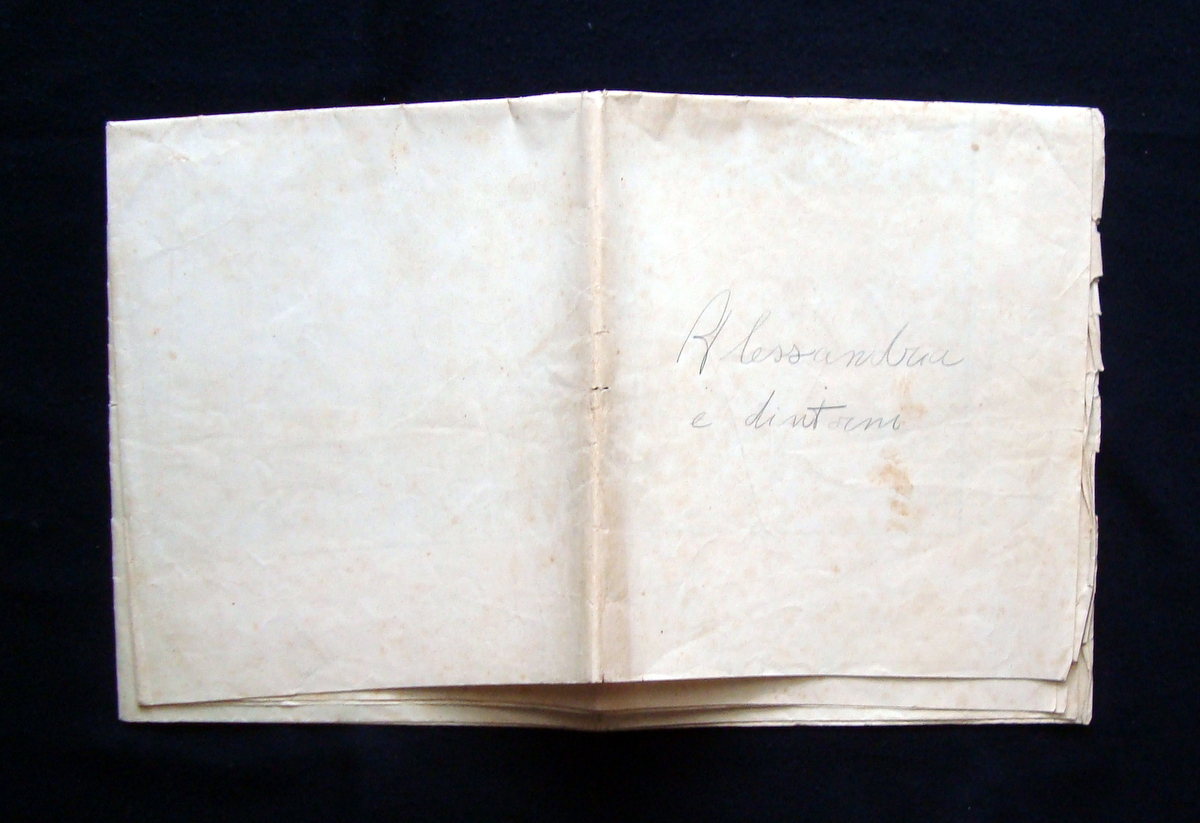 Alessandria
e dintorni